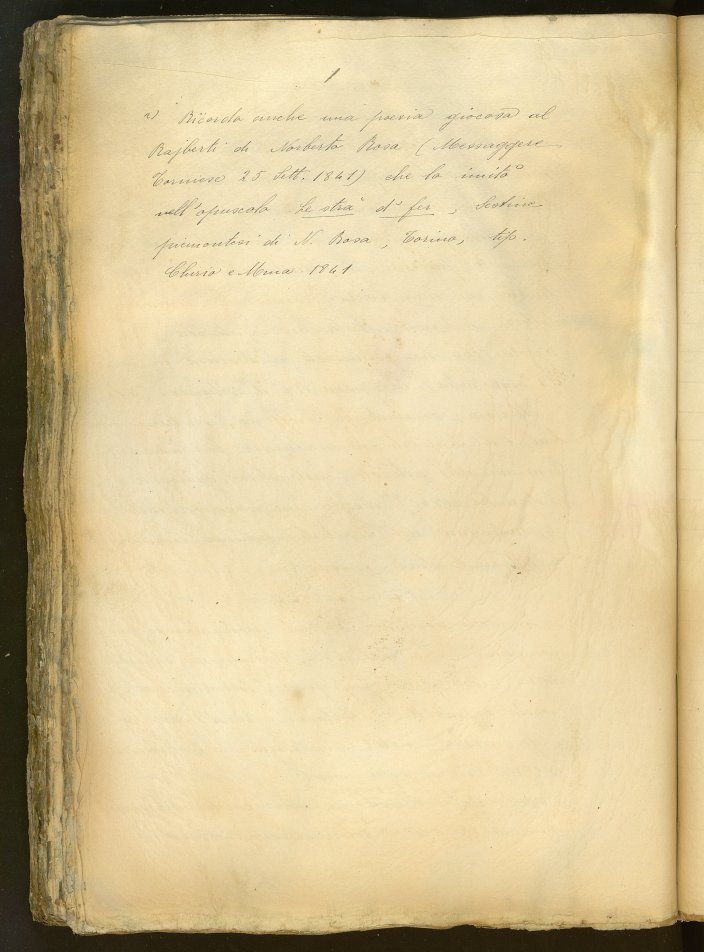 1
2) Ricordo anche una poesia giocosa al
Rajberti di Norberto Rosa (Messaggere
Torinese 25 Sett. 1841) che lo imitò
nell'opuscolo Le strà d' fer, Sestine
piemontesi di N. Rosa, Torino, tip.
Chirio e Mina 1841